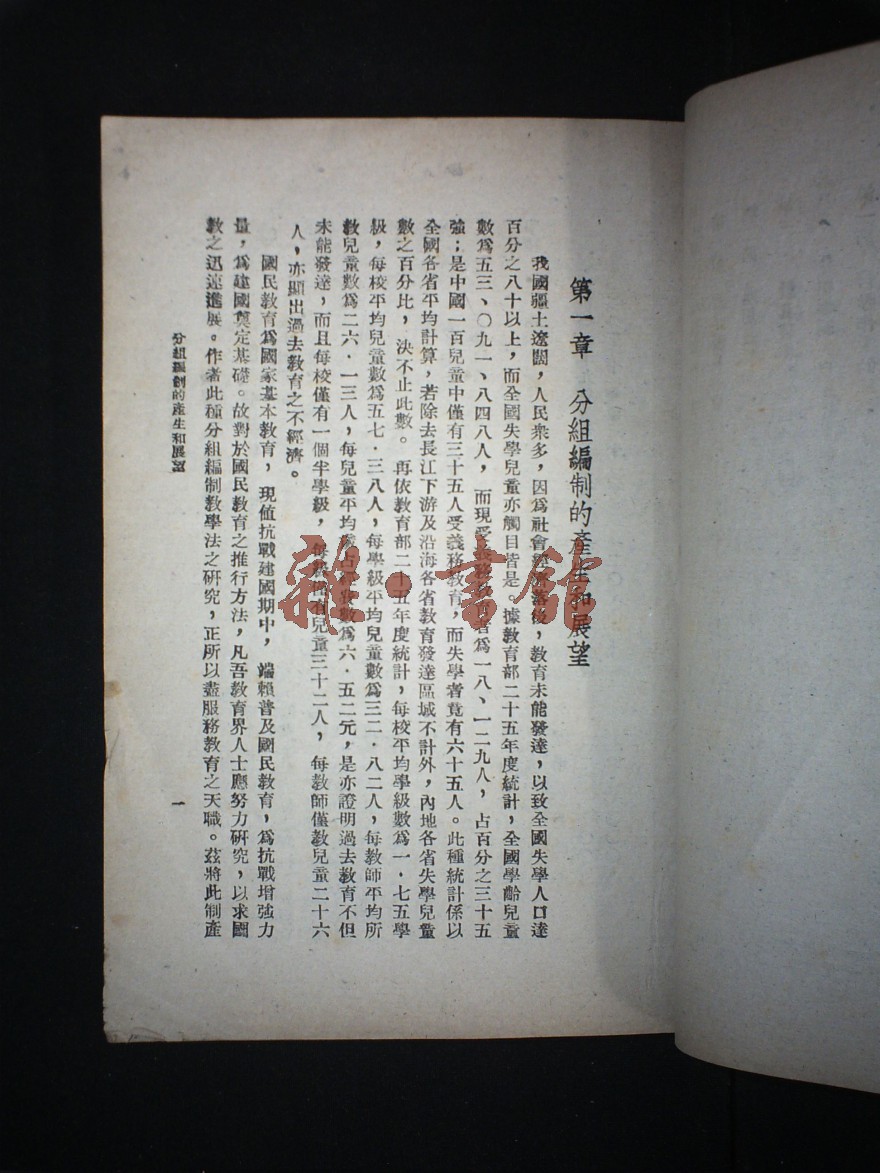 第一章 分組編制的產生和展望
我國疆土遼闊，人民衆多，因爲社會經濟落後，教育未能發達，以致全國失學人口達
百分之八十以上，而全國失學兒童亦觸目皆是。據教育部二十五年度統計，全國學齡兒童
數爲五三、〇九一、八四八人，而現受義務教育者爲一八、一二九人，占百分之三十五
強；是中國一百兒童中僅有三十五人受義務教育，而失學者竟有六十五人。此種統計係以
全國各省平均計算，若除去長江下游及沿海各省教育發達區城不計外，內地各省失學兒童
數之百分比，決不止此數。再依教育部二十五年度統計，每校平均學級數爲一·七五學
級，每校平均兒童數爲五七·三八人，每學級平均兒童數爲三二·八二人，每教師平均所
教兒童數爲二六·一三人，每兒童平均占經費數爲六·五二元，是亦證明過去教育不但
未能發達，而且每校僅有一個半學級，每級僅有兒童三十二人，每教師僅教兒童二十六
人，亦顯出過去教育之不經濟。
國民教育爲國家基本教育，現值抗戰建國期中，端賴普及國民教育，爲抗戰增強力
量，爲建國奠定基礎。故對於國民教育之推行方法，凡吾教育界人士應努力研究，以求國
教之迅速進展。作者此種分組編制教學法之研究，正所以盡服務教育之天職。茲將此制產
分組編制的產生和展望
一
雜·書館